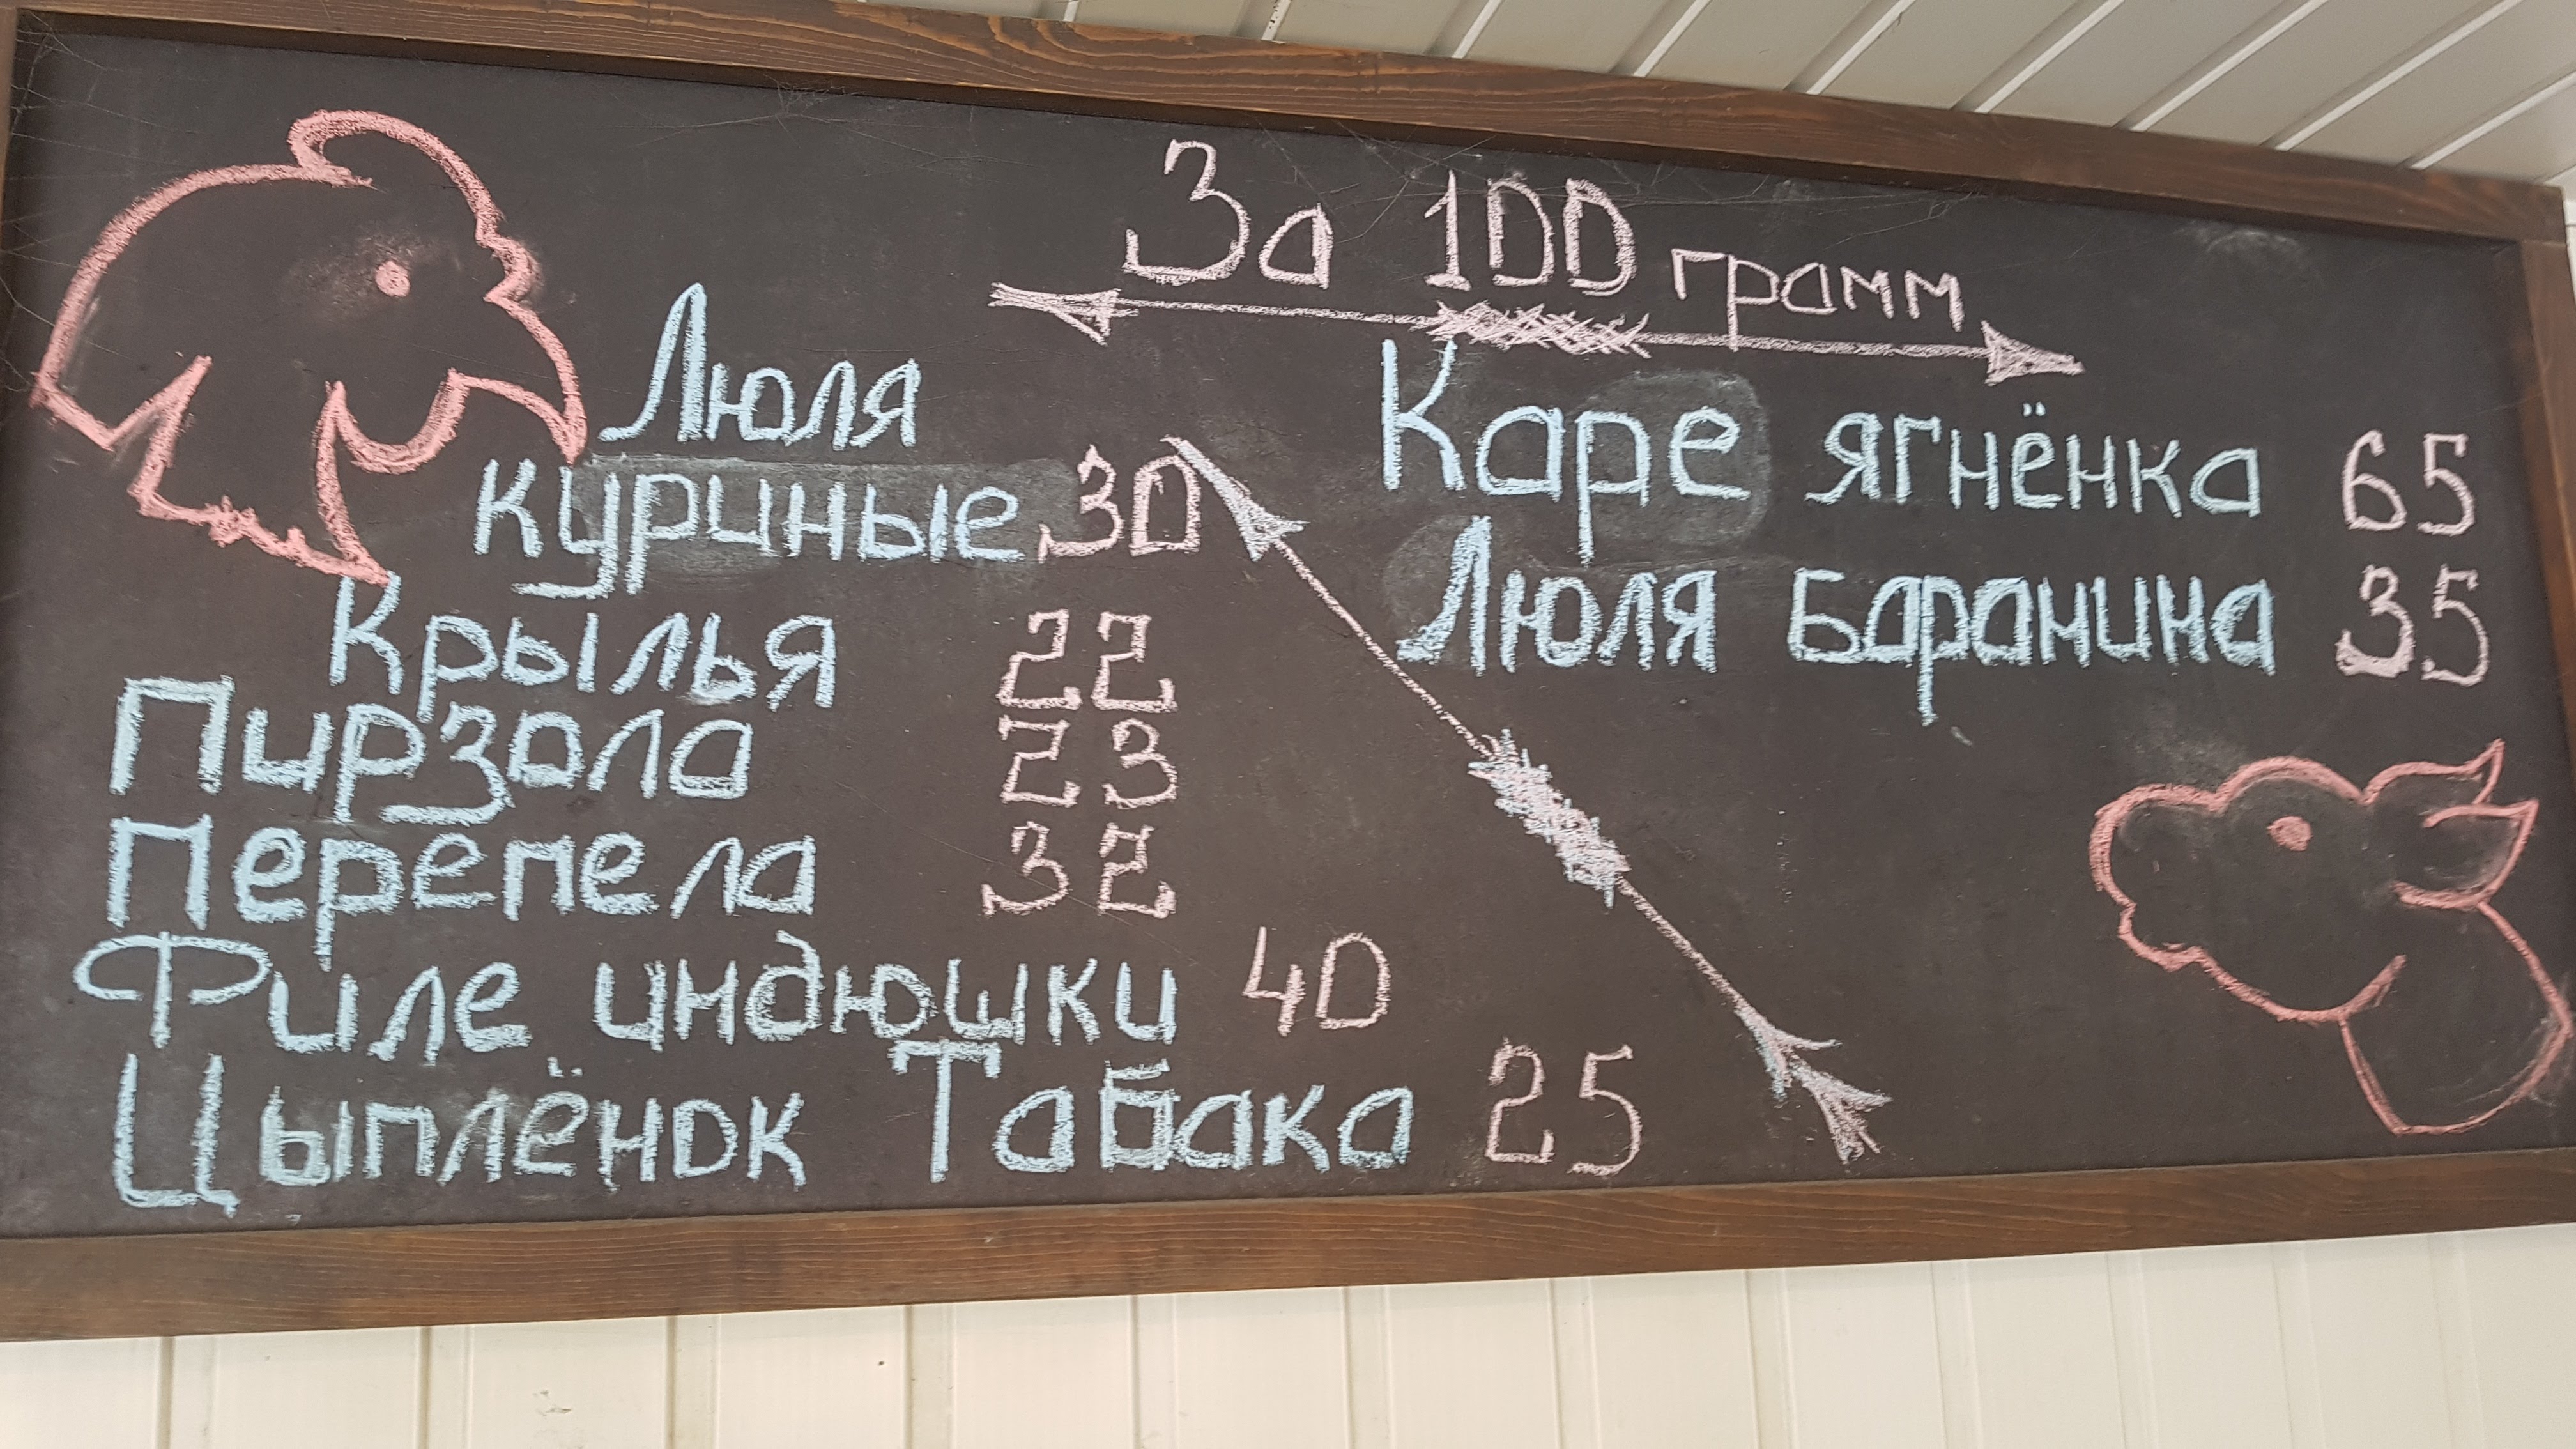 За 100 грамм
Люля
куриные 30
Крылья 22
Пирзола 23
Перепела 32
Филе индюшки 40
Цыплёнок Табака 25
Каре ягнёнка 65
Люля баранина 35